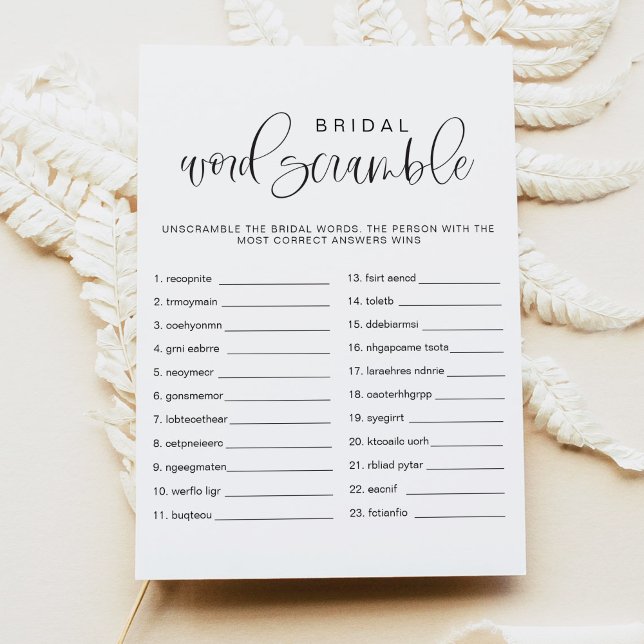 BRIDAL
word scramble
UNSCRAMBLE THE BRIDAL WORDS. THE PERSON WITH THE
MOST CORRECT ANSWERS WINS
1. recopnite
2. trmoymain
3. ooehyonmn
4. grni eabrre
5. neoymecr
6. gonsmemor
7. lobtecethear
8. cetpneieerc
9. ngeegmaten
10. werflo ligr
11. buqteou
13. fsirt aencd
14. toletb
15. ddebiarmsi
16. nhgapcame tsota
17. laraehres ndnrie
18. oaoterhhgrpp
19. syegirrt
20. ktcoailc uorh
21. rbliad pytar
22. eacnif
23. fctianfio